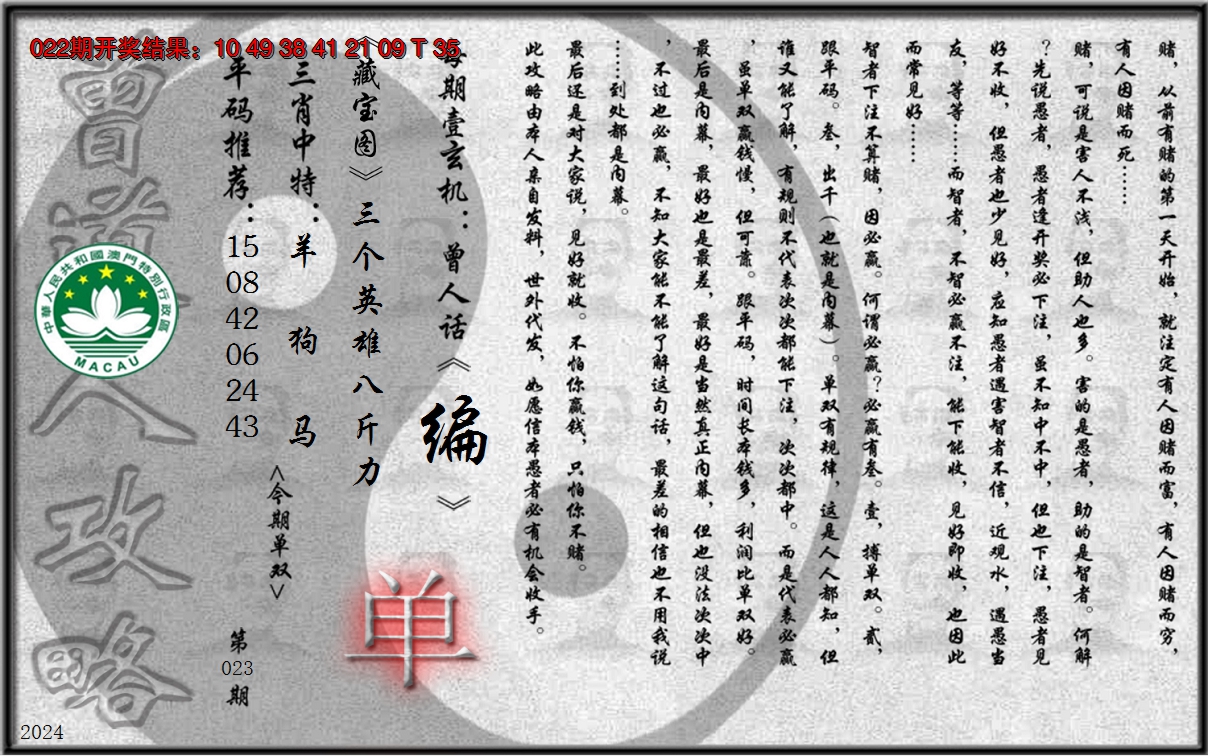 022期开奖结果：10 49 38 41 21 09 T 35
赌，从前有赌的第一天开始，就注定有人因赌而富，有人因赌而穷，
有人因赌而死……
赌，可说是害人不浅，但助人也多。害的是愚者，助的是智者。何解
？先说愚者，愚者逢开奖必下注，虽不知中不中，但也下注，愚者见
好不收，但愚者也少见好，应知愚者遇害智者不信，近观水，遇愚当
友，等等……而智者，不智必赢不注，能下能收，见好即收，也因此
而常见好……
智者下注不算赌，因必赢。何谓必赢？必赢有叁。壹，搏单双。贰，
跟平码。叁，出千（也就是内幕）。单双有规律，这是人人都知，但
谁又能了解，有规则不代表次次都能下注，次次都中。而是代表必赢
，虽单双赢钱慢，但可靠。跟平码，时间长本钱多，利润比单双好。
最后是内幕，最好也是最差，最好是当然真正内幕，但也没法次次中
，不过也必赢，不知大家能不能了解这句话，最差的相信也不用我说
……到处都是内幕。
最后还是对大家说，见好就收。不怕你赢钱，只怕你不赌。
此攻略由本人亲自发料，世外代发，如愿信本愚者必有机会收手。
每期壹玄机：曾人话《编》
《藏宝图》三个英雄八斤力
三肖中特：羊 狗 马
<今期单双>
单
平码推荐：
15
08
42
06
24
43
第
023
期
曾道人攻略
中華人民共和國澳門特別行政區
MACAU
2024